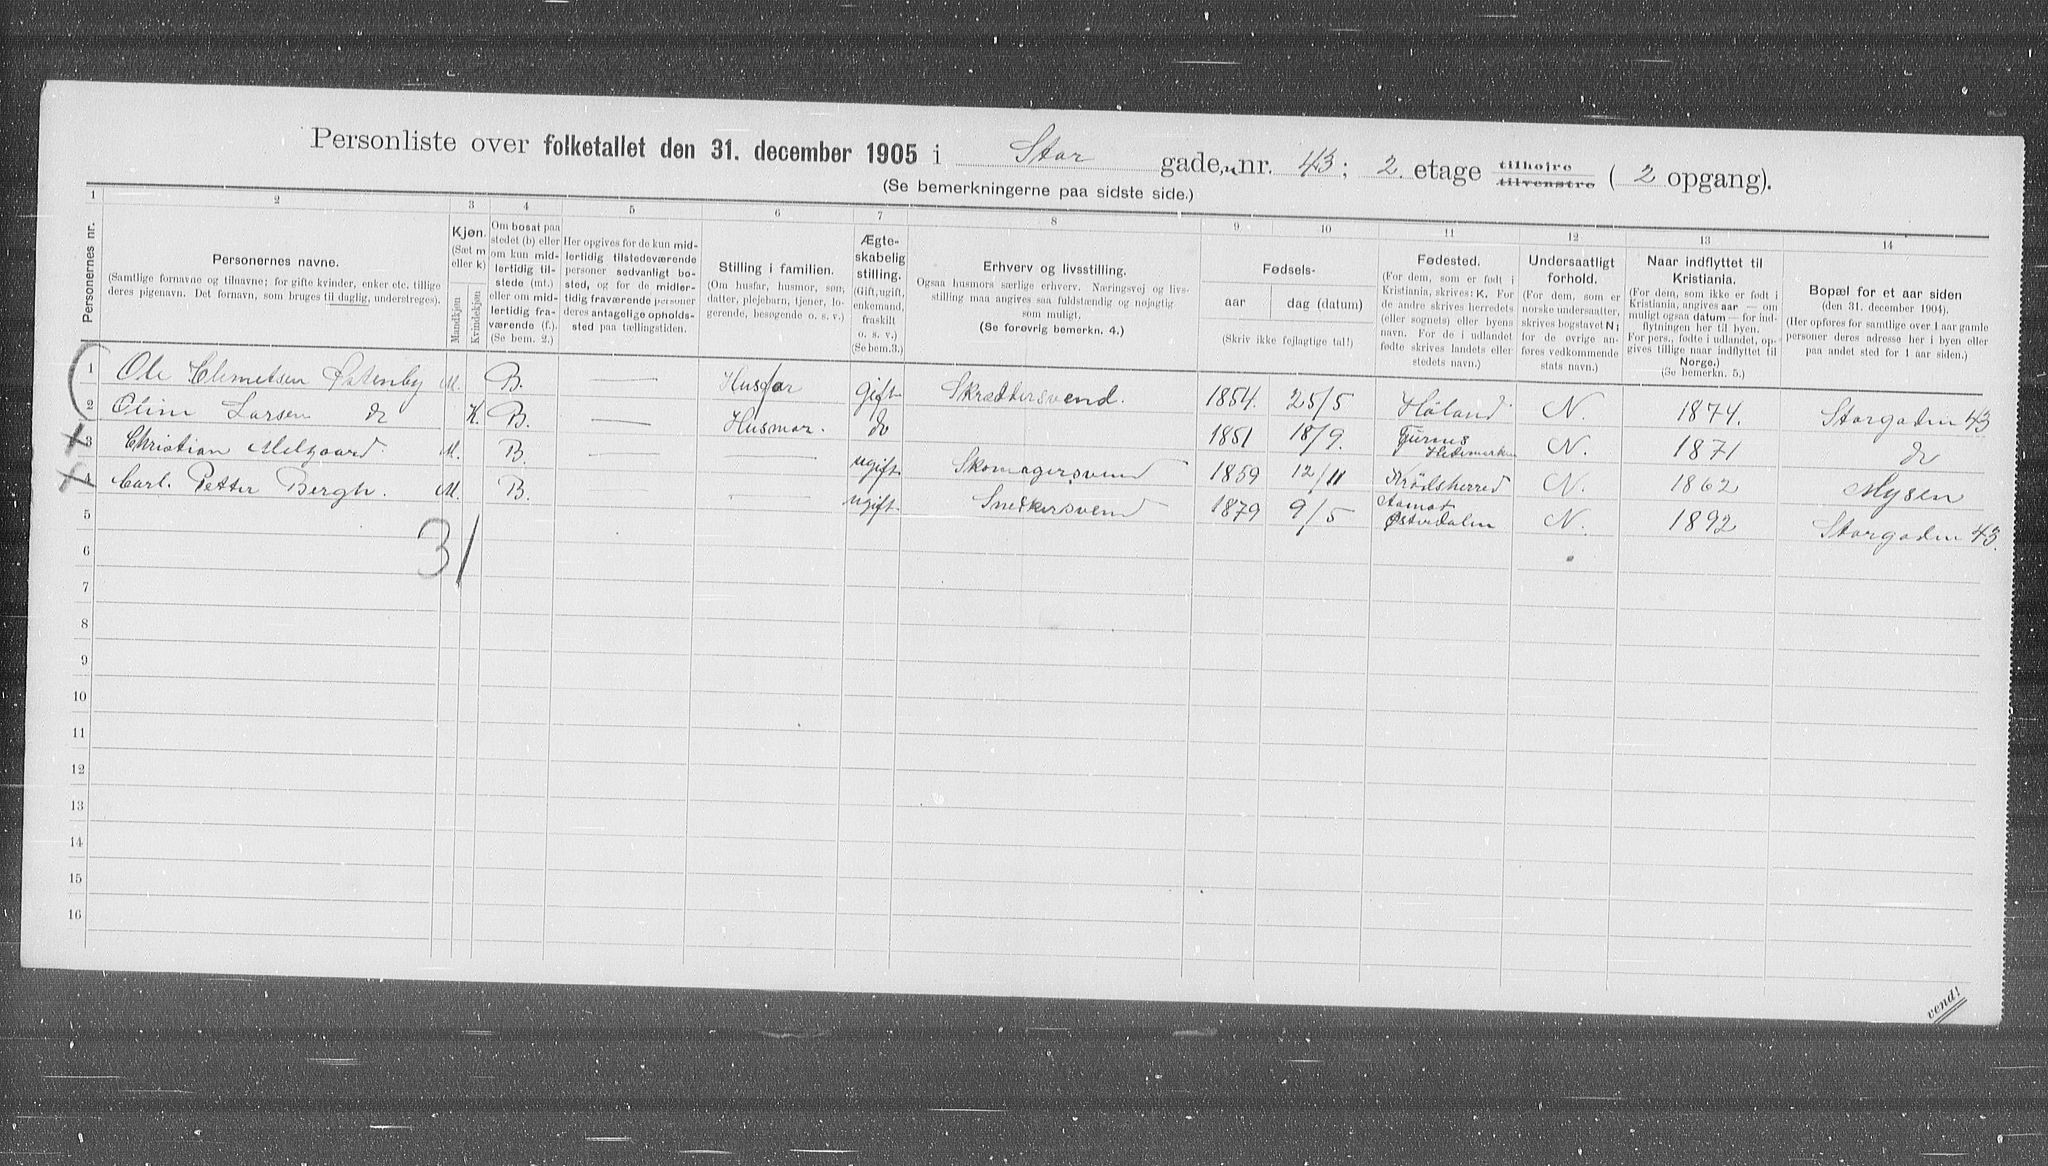 Personliste over folketallet den 31. december 1905 i Stor gade, nr. 43; 2. etage tilhøjre tilvenstre (2 opgang).
(Se bemerkningerne paa sidste side.)
1 2 3 4 5 6 7 8 9 10 11 12 13 14
Personernes nr.
Personernes navne.
(Samtlige fornavne og tilnavne; for gifte kvinder, enker etc. tillige
deres pigenavn. Det fornavn, som bruges til daglig, understreges).
Kjøn.
(Sæt m
eller k)
Mandkjøn
Kvindekjøn
Om bosat paa
stedet (b) eller
om kun mid-
lertidig til-
stede (mt.)
eller om mid-
lertidig fra-
værende (f.).
(Se bem. 2.)
Her opgives for de kun mid-
lertidig tilstedeværende
personer sedvanligt bo-
sted, og for de midler-
tidig fraværende personer
deres antagelige opholds-
sted paa tællingstiden.
Stilling i familien.
(Om husfar, husmor, søn,
datter, plejebarn, tjener, lo-
gerende, besøgende o. s. v.)
Ægte-
skabelig
stilling.
(Gift, ugift,
enkemand,
fraskilt
o. s. v.)
(Se bem. 3.)
Erhverv og livsstilling.
Ogsaa husmors særlige erhverv. Næringsvej og livs-
stilling maa angives saa fuldstændig og nøjagtig
som muligt.
(Se forøvrig bemerkn. 4.)
Fødsels-
aar
dag (datum)
(Skriv ikke fejlagtige tal!)
Fødested.
(For dem, som er født i
Kristiania, skrives: K. For
de andre skrives herredets
(eller sognets) eller byens
navn. For de i udlandet
fødte skrives landets eller
stedets navn.)
Undersaatligt
forhold.
(For dem, som er
norske undersaatter,
skrives bogstavet N;
for de øvrige an-
føres vedkommende
stats navn.)
Naar indflyttet til
Kristiania.
(For dem, som ikke er født i
Kristiania, angives aar — om
muligt ogsaa datum — for ind-
flytningen her til byen.
For pers., fødte i udlandet, op-
gives tillige naar indflyttet til
Norge.)
(Se bemerkn. 5.)
Bopæl for et aar siden
(den 31. december 1904).
(Her opføres for samtlige over 1 aar gamle
personer deres adresse her i byen eller
paa andet sted for 1 aar siden.)
1 Ole Clemetsen Østenby M. B. — Husfar gift Skræddersvend. 1854. 25/5 Høland N. 1874. Storgaden 43
2 Oline Larsen do K. B. — Husmor. do 1851 18/9. Furnes Hedemarken N. 1871 do
3 Christian Melgaard. M. B. — — ugift Skomagersvend 1859 12/11 Krødsherred N. 1862 Mysen
4 Carl. Petter Bergh. M. B. — — ugift Snekkersvend 1879 9/5 Aamot Østerdalen N. 1892 Storgaden 43.
31
5
6
7
8
9
10
11
12
13
14
15
16
vend!